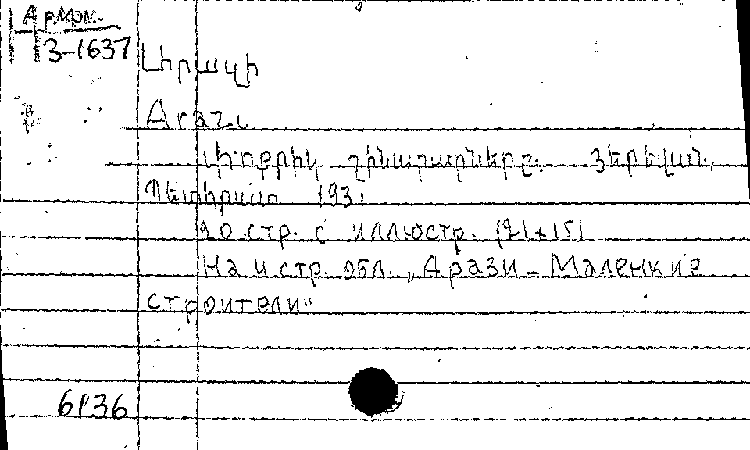 Арм.
3-1637
Արազի
Փոքրիկ շինարարները. Յերեվան,
Պետհրատ 193
20 стр. с иллюстр. (21x15)
На 4 стр. обл. „Арази - Маленкие
строители"
6136